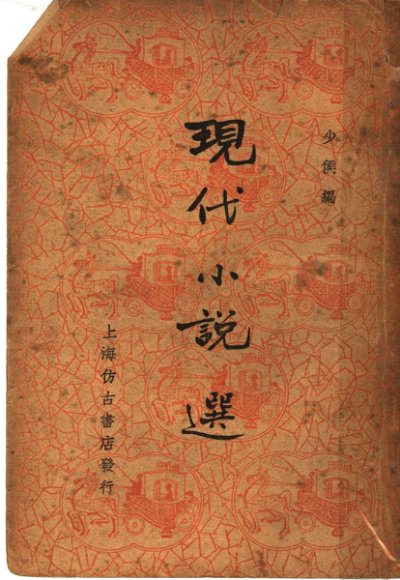 少侯編
現代小説選
上海仿古書店發行